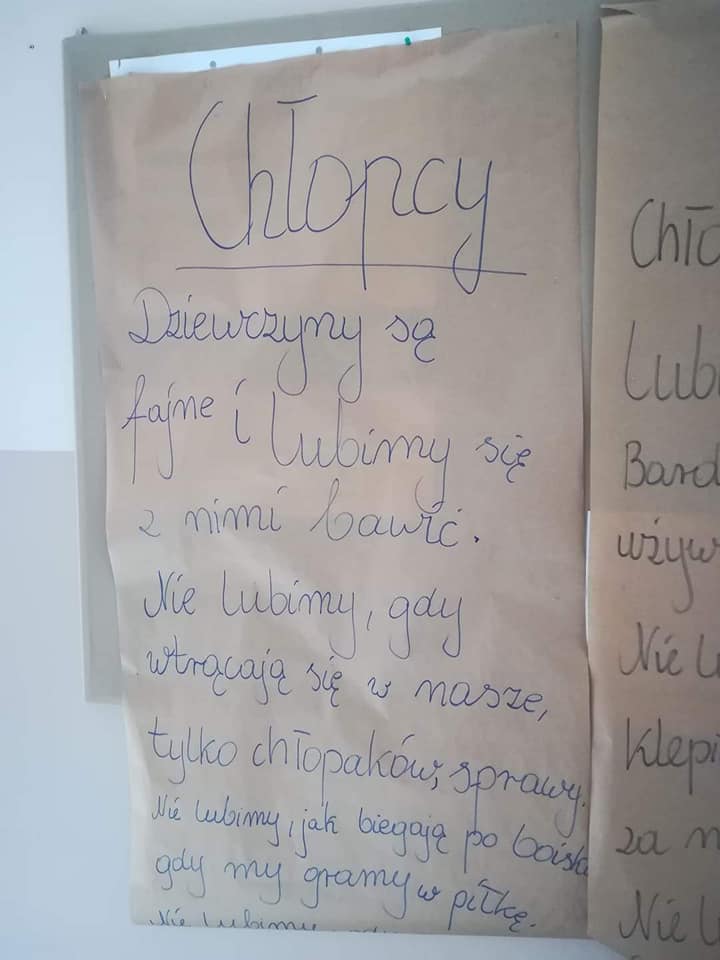 Chłopcy
Dziewczyny są
fajne i lubimy się
z nimi bawić.
Nie lubimy, gdy
wtrącają się w nasze,
tylko chłopaków, sprawy.
Nie lubimy, jak biegają po boisku
gdy my gramy w piłkę.
Nie lubimy
Chło
Lubi
Bard
używ
Nie lu
klepi
za n
Nie lu